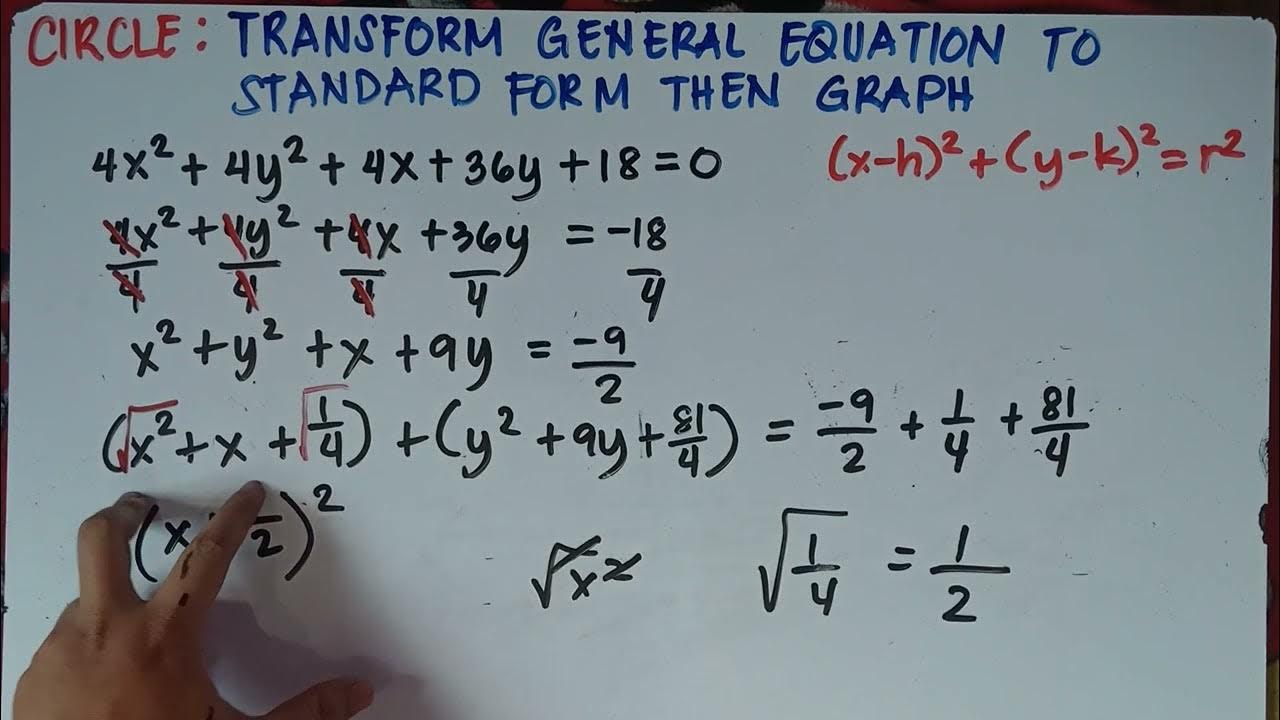 CIRCLE: TRANSFORM GENERAL EQUATION TO
STANDARD FORM THEN GRAPH
4x² + 4y² + 4x + 36y + 18 = 0
(x-h)² + (y-k)² = r²
4x²/4 + 4y²/4 + 4x/4 + 36y/4 = -18/4
x² + y² + x + 9y = -9/2
(√x² + x + √1/4) + (y² + 9y + 81/4) = -9/2 + 1/4 + 81/4
(x /2)²
√x²
√1/4 = 1/2